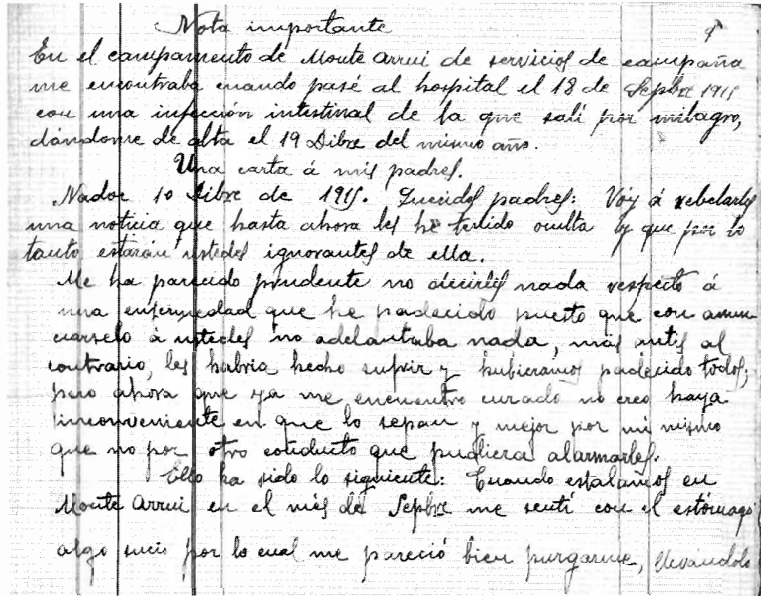 Nota importante
En el campamento de Monte Arrui de servicios de campaña
me encontraba cuando pasé al hospital el 18 de Sepbre 1915
con una infección intestinal de la que salí por milagro,
dándome de alta el 19 Dibre del mismo año.
Una carta á mis padres.
Nador 10 Dibre de 1915. Queridos padres: Voy á rebelarles
una noticia que hasta ahora les he tenido oculta y que por lo
tanto estarán ustedes ignorantes de ella.
Me ha parecido prudente no decirles nada respecto á
una enfermedad que he padecido puesto que con anun
ciarselo á ustedes no adelantaba nada, mas antes al
contrario, les habria hecho sufrir y hubieramos padecido todos;
pero ahora que ya me encuentro curado no creo haya
inconveniente en que lo sepan y mejor por mi mismo
que no por otro conducto que pudiera alarmarles.
Ello ha sido lo siguiente: Cuando estabamos en
Monte Arrui en el mes de Sepbre me sentí con el estómago
algo sucio por lo cual me pareció bien purgarme, llevandolo